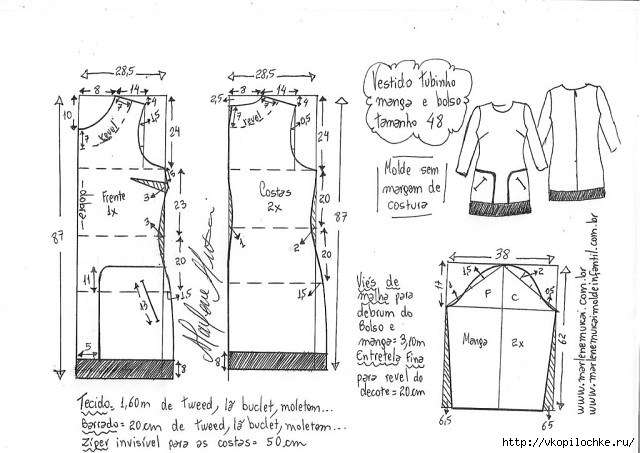 28,5
8
14
10
7
revel
4
1,5
24
5
3
dobra
Frente
1x
23
3
87
20
11
13
1,5
5
8
28,5
2,5
8
14
7
revel
4
0,5
24
Costas
2x
20
1
2
87
20
1,5
8
Marlene Mukai
Vestido tubinho
manga e bolso
tamanho 48
Molde sem
margem de
costura
Viés de
malha para
debrum do
Bolso e
manga= 3,10m
Entretela Fina
para revel do
decote = 20cm
38
17
1,5
2
F
C
0,5
Manga
2x
62
6,5
65
www.marlenemukai.com.br
www.marlenemukaimoldeinfantil.com.br
Tecido= 1,60m de tweed, lã buclet, moletom...
Barrado= 20cm de tweed, lã buclet, moletom...
Zíper invisível para as costas= 50cm
http://vkopilochke.ru/